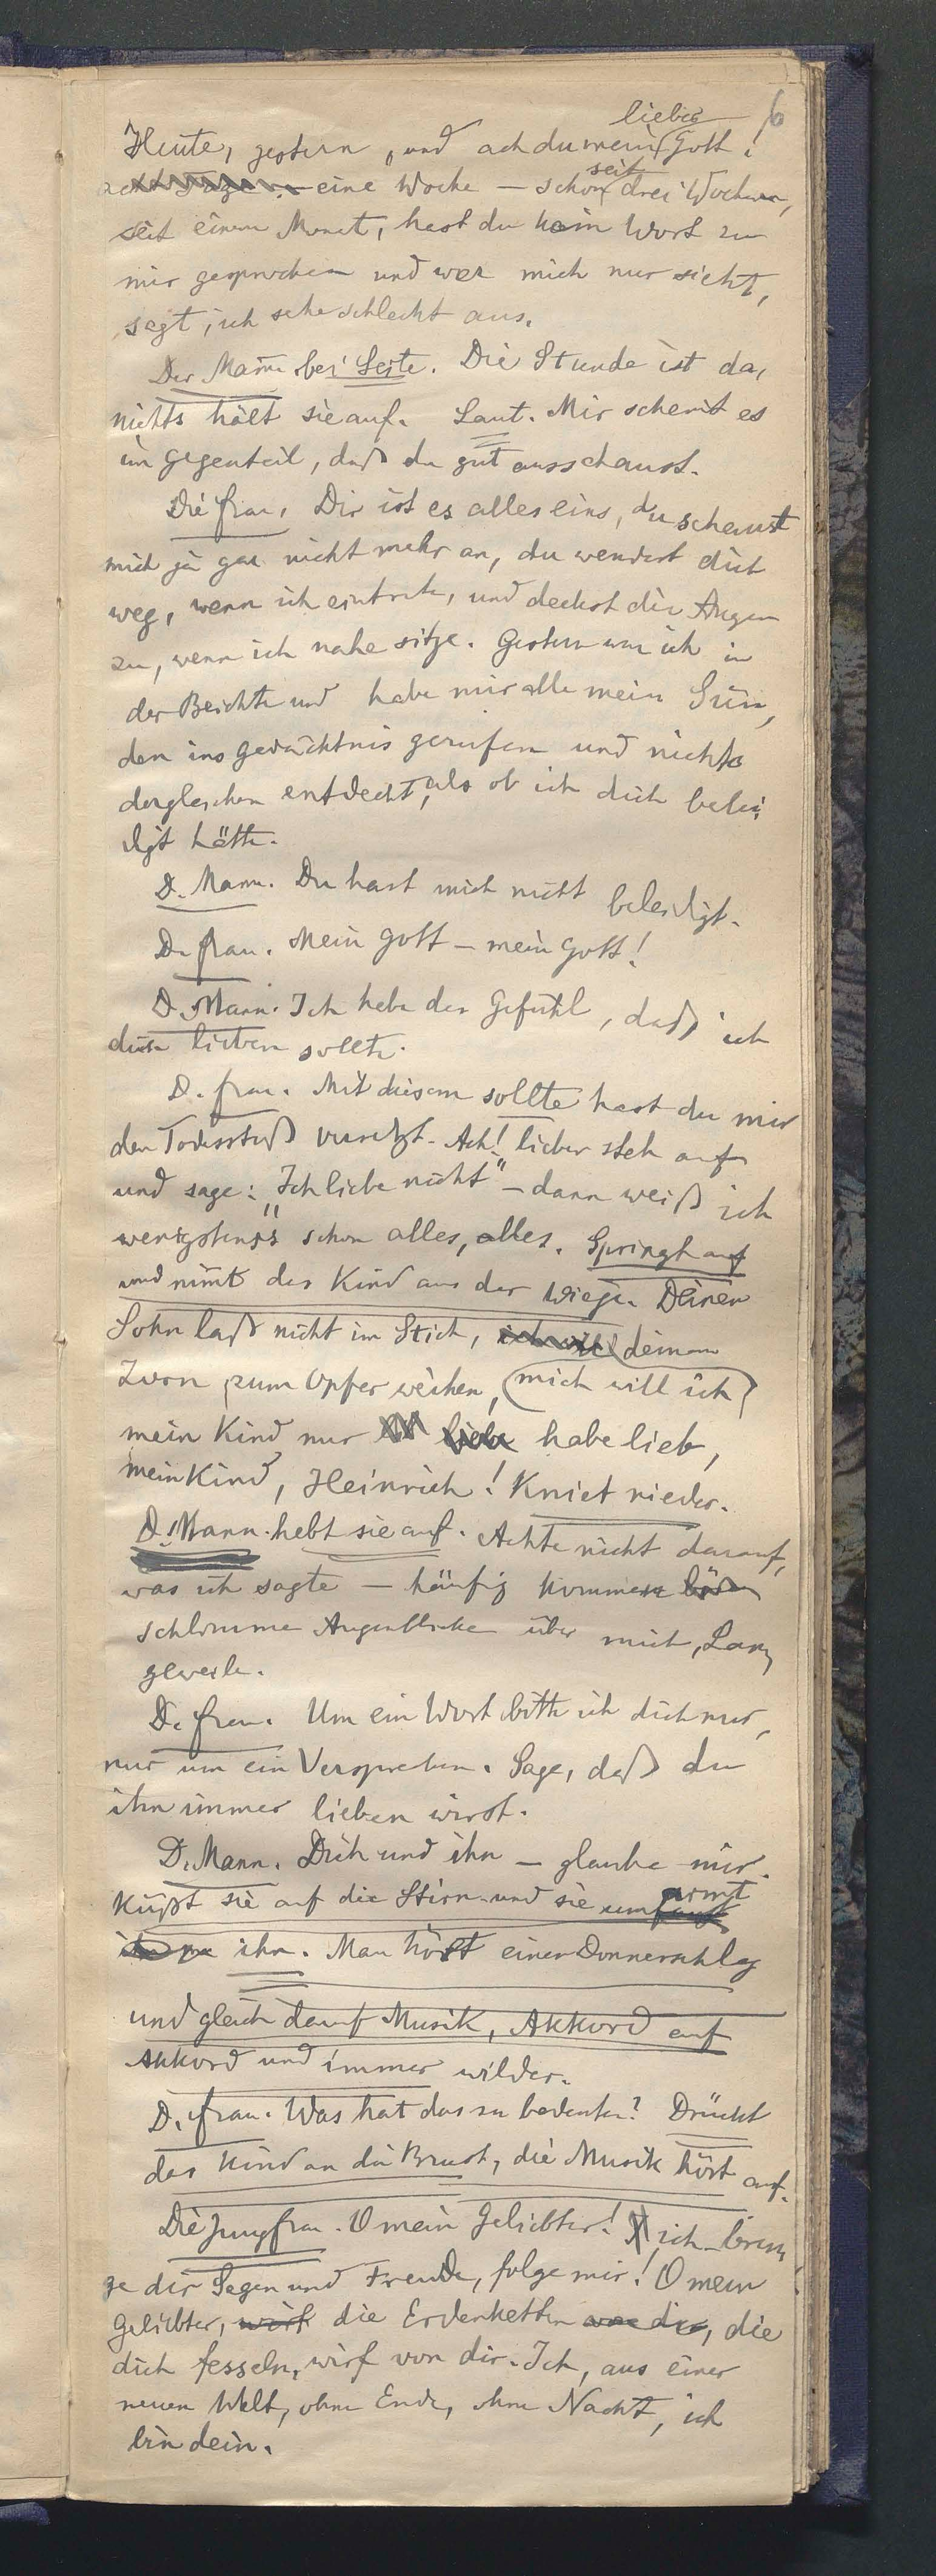 6
Heute, gestern, und ach du mein lieber Gott!
acht Tagen – eine Woche – schon seit drei Wochen,
seit einem Monat, hast du kein Wort zu
mir gesprochen und wer mich nur sieht,
sagt, ich sehe schlecht aus.
Der Mann bei Seite. Die Stunde ist da,
nichts hält sie auf. Laut. Mir scheint es
im Gegenteil, daß du gut ausschaust.
Die Frau. Dir ist es alles eins, du schaust
mich ja gar nicht mehr an, du wendest dich
weg, wenn ich eintrete, und deckst die Augen
zu, wenn ich nahe sitze. Gestern war ich in
der Beichte und habe mir alle mein Sün,
den ins Gedächtnis gerufen und nichts
dergleichen entdeckt, als ob ich dich belei
digt hätte.
D. Mann. Du hast mich nicht beleidigt.
D. Frau. Mein Gott – mein Gott!
D. Mann. Ich habe das Gefühl, daß ich
dich lieben sollte.
D. Frau. Mit diesem sollte hast du mir
den Todesstoß versetzt. Ach! lieber steh auf
und sage: „Ich liebe nicht" – dann weiß ich
wenigstens schon alles, alles. Springt auf
und nimt das Kind aus der Wiege. Deinen
Sohn laß nicht im Stich, ich will deinem
Zorn zum Opfer weihen, mich will ich
mein Kind nur liebe habe lieb,
mein Kind, Heinrich! Kniet nieder.
D. Mann. hebt sie auf. Achte nicht darauf,
was ich sagte – häufig kommen böse
schlimme Augenblicke über mich, Lan,
geweile.
D. Frau. Um ein Wort bitte ich dich nur,
nur um ein Versprechen. Sage, daß du
ihn immer lieben wirst.
D. Mann. Dich und ihn – glaube mir.
Küßt sie auf die Stirn und sie umarmt
ihn. Man hört einen Donnerschlag
und gleich darauf Musik, Akkord auf
Akkord und immer wilder.
D. Frau. Was hat das zu bedeuten? Drückt
das Kind an die Brust, die Musik hört auf.
Die Jungfrau. O mein Geliebter! ich brin,
ge dir Segen und Freude, folge mir! O mein
Geliebter, wirf die Erdenketten von dir, die
dich fesseln, wirf von dir. Ich, aus einer
neuen Welt, ohne Ende, ohne Nacht, ich
bin dein.